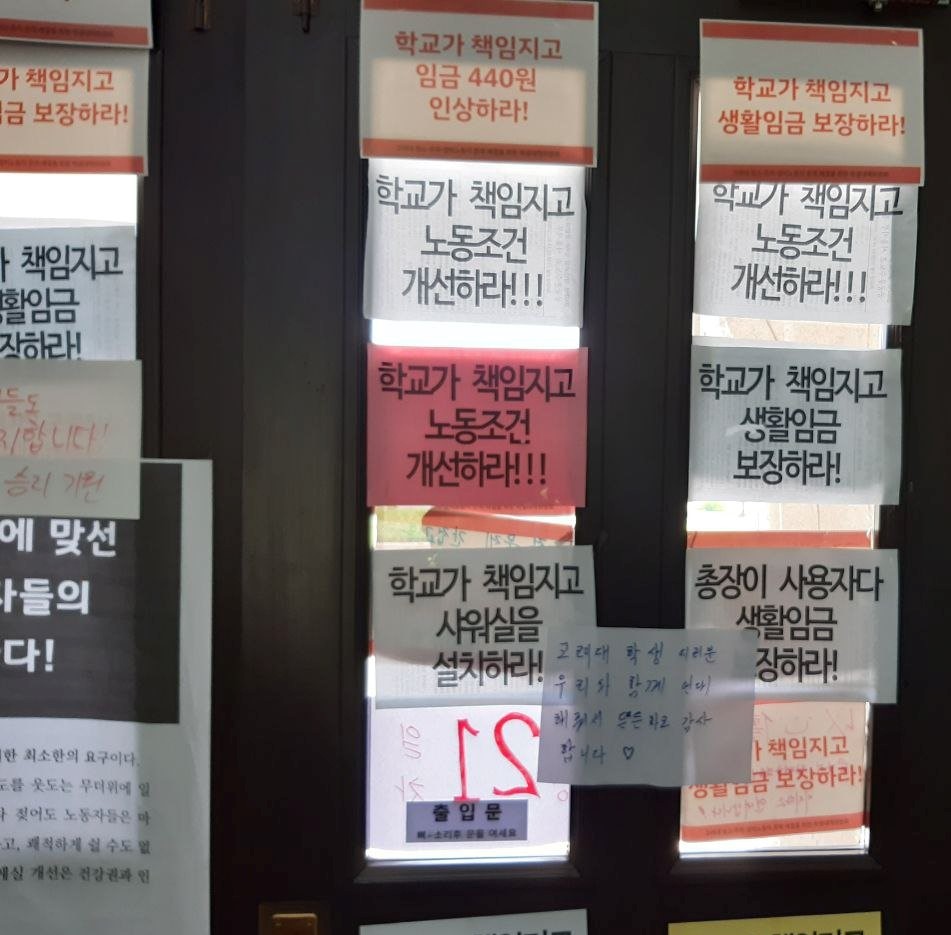 가 책임지고
금 보장하라!
책임지고
활임금
장하라!
들도
지합니다!
승리 기원
에 맞선
자들의
다!
한 최소한의 요구이다.
도를 웃도는 무더위에 일
다 젖어도 노동자들은 마
고, 쾌적하게 쉴 수도 없
게실 개선은 건강권과 인
학교가 책임지고
임금 440원
인상하라!
학교가 책임지고
노동조건
개선하라!!!
학교가 책임지고
노동조건
개선하라!!!
학교가 책임지고
샤워실을
설치하라!
21
출입문
삐~소리후 문을 여세요
고려대 학생 여러분
우리와 함께 연대
해줘서 든든하고 감사
합니다 ♡
학교가 책임지고
생활임금 보장하라!
학교가 책임지고
노동조건
개선하라!!!
학교가 책임지고
생활임금
보장하라!
총장이 사용자다
생활임금
장하라!
가 책임지고
생활임금 보장하라!